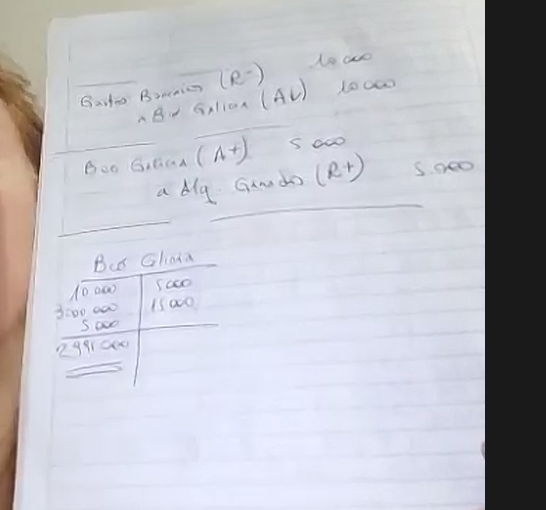 Gastos Bancarios (R-) 10 000
a Bco Galicia (A↓) 10 000
Bco Galicia (A+) 5 000
a Alq. Ganados (R+) 5.000
Bco Glicia
10 000 5 000
3000 000 15 000
5 000
2 991 000